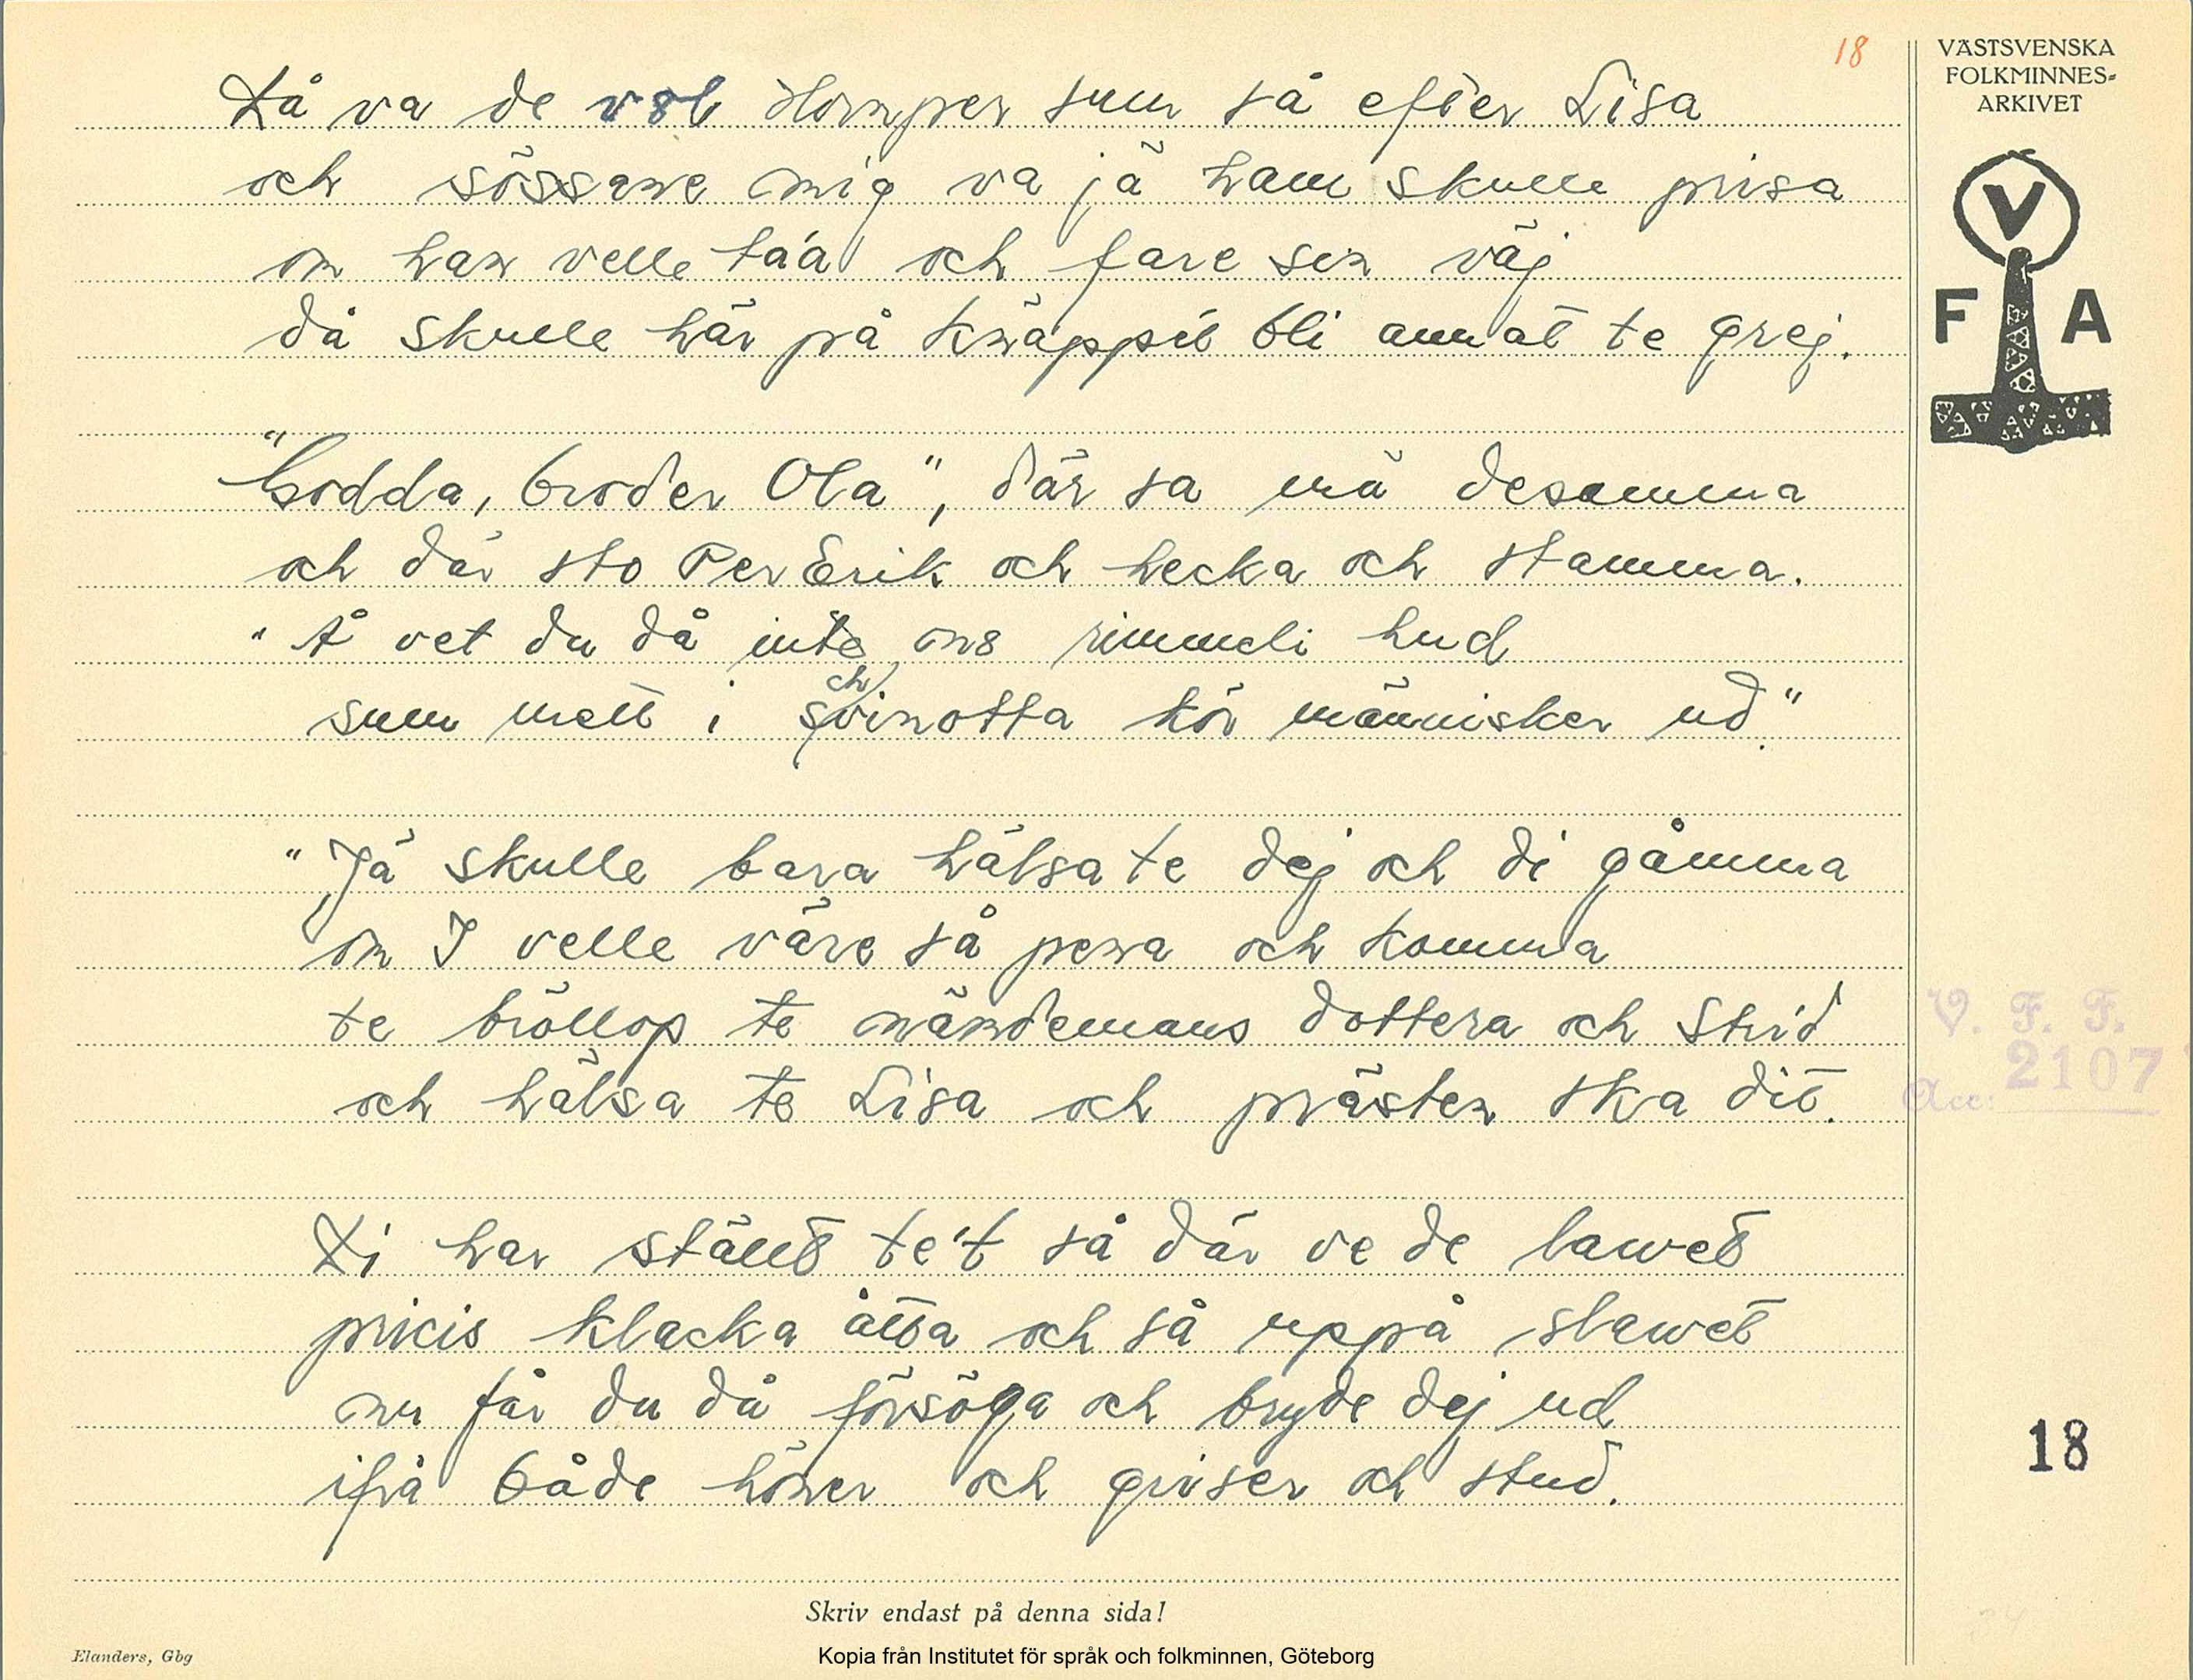 18
VÄSTSVENSKA
FOLKMINNES=
ARKIVET
V
F A
Då va de väl Hornper sum så efter Lisa
och sössane mig va jä ham skulle prisa
om han velle ta'a och fare sen väj
då skulle här på knäppet bli annat te grej.
"Godda, broder Ola", där sa mä desamma
och där sto Per Erik och hecka och stamma.
"Å vet du då inte ens rimmeli hud
sum mett i schinotta kör människer ud."
"Jä skulle bara hälsa te dej och di gåmma
om I velle väre så pena och komma
te bröllop te nämdemans dottera och Strid
och hälsa te Lisa och prästen ska dit.
Di har ställt te't så där ve de lawet
pricis klacka åtta och så uppå slawet
nu får du då försöga och bryde dej ud
ifrå både höner och griser och stud.
V. F. F.
Acc: 2107
18
Skriv endast på denna sida!
Elanders, Gbg
Kopia från Institutet för språk och folkminnen, Göteborg